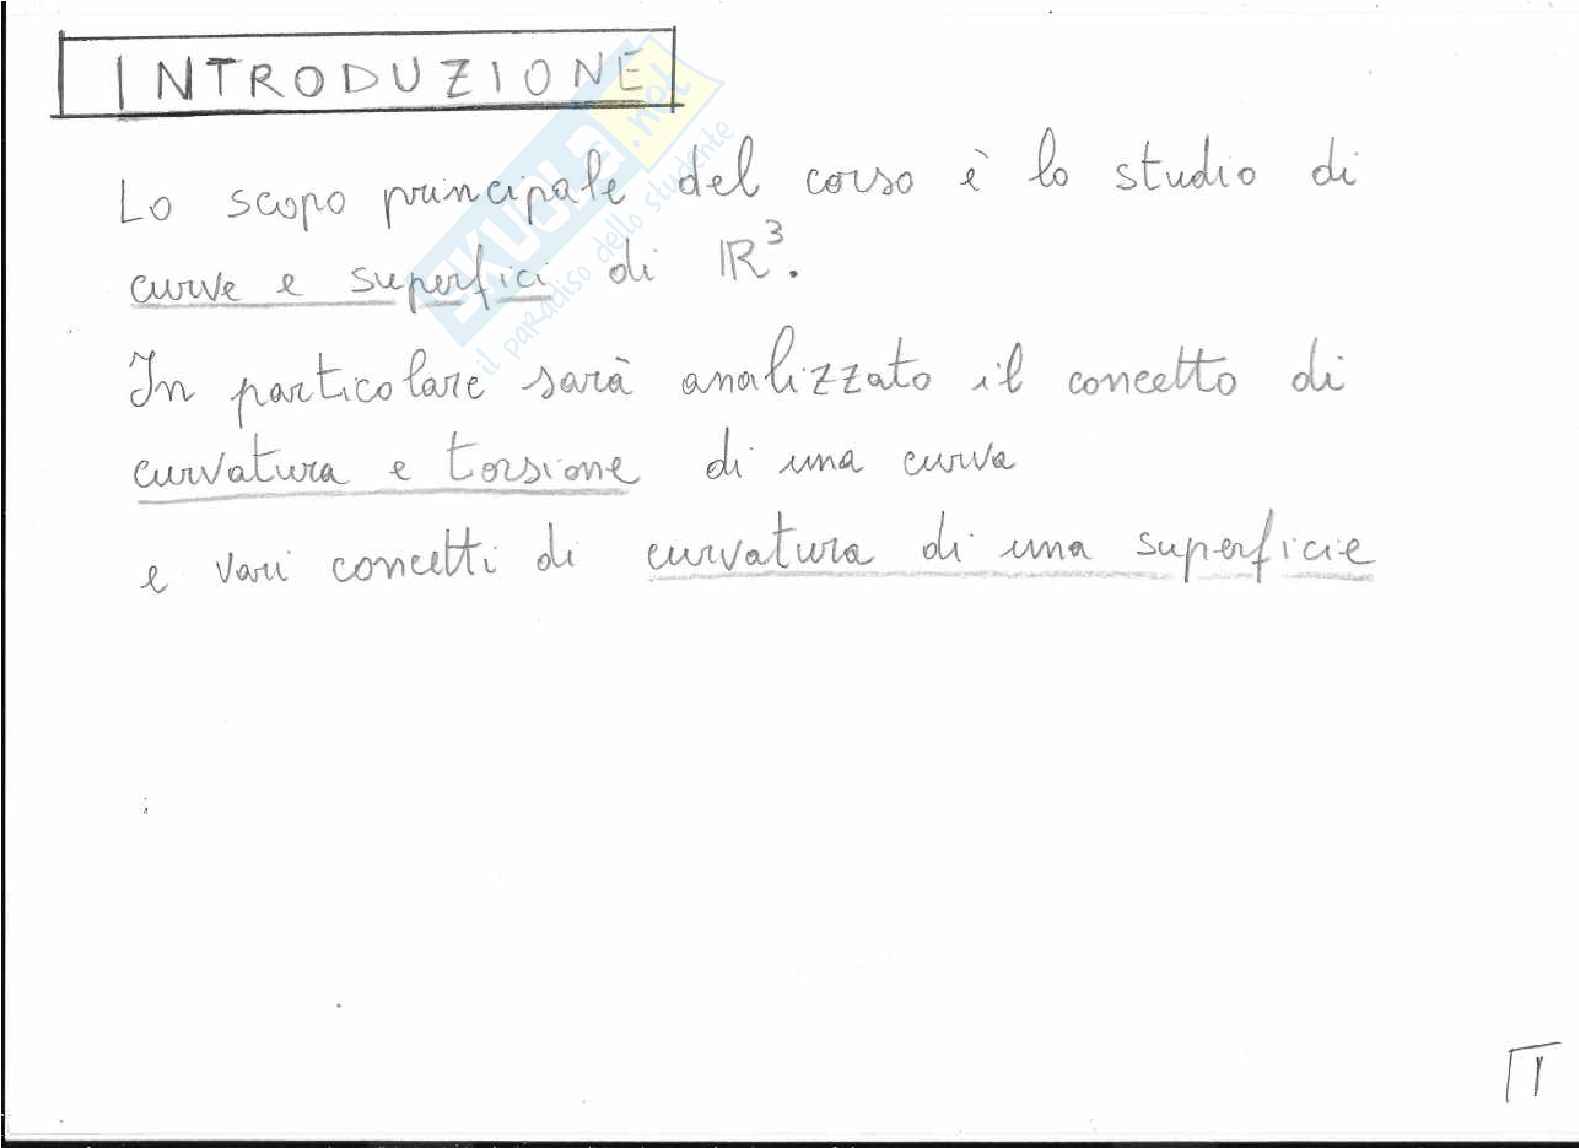 INTRODUZIONE
Lo scopo principale del corso è lo studio di
curve e superfici di ℝ³.
In particolare sarà analizzato il concetto di
curvatura e torsione di una curva
e vari concetti di curvatura di una superficie
SKUOLA.net
il paradiso dello studente
1